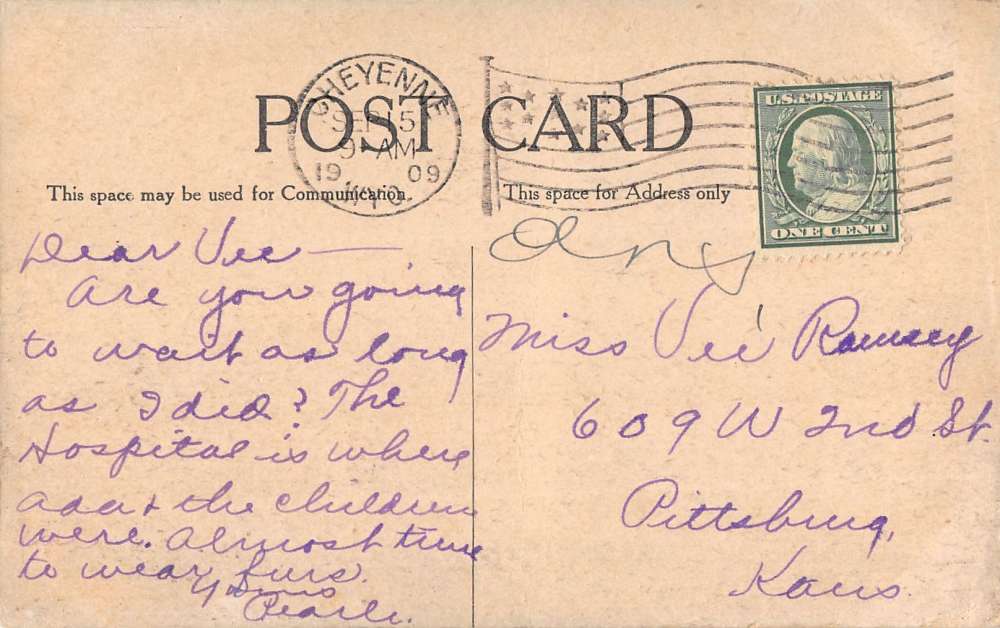 POST CARD
CHEYENNE
SEP 15
9-AM
19 09
WYO.
U.S. POSTAGE
ONE CENT
This space may be used for Communication.
This space for Address only
Dear Vee —
Are you going
to wait as long
as I did? The
Hospital is where
Ada & the children
were. Almost time
to wear furs.
Yours
Pearle.
Miss Vee Ramsey
609 W 2nd St.
Pittsburg,
Kans.